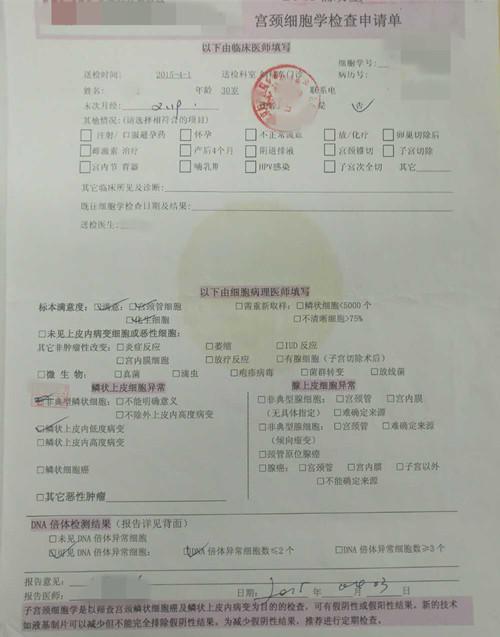 宫颈细胞学检查申请单
以下由临床医师填写
细胞学号:
送检时间: 2015-4-1 送检科室 门诊 病历号:
姓名: 年龄 30岁 联系电
末次月经: 是 否
其他情况:(请选择相符合的项目)
□注射/口服避孕药 □怀孕 □不正常流血 □放/化疗 □卵巢切除后
□雌激素 治疗 □产后4个月 □阴道排液 □宫颈锥切 □子宫切除
□宫内节育器 □哺乳期 □HPV感染 □子宫次全切 其它
其它临床所见及诊断:
既往细胞学检查日期及结果:
送检医生:
以下由细胞病理医师填写
标本满意度:□满意: □宫颈管细胞 □需重新取样: □鳞状细胞<5000个
□化生细胞 □不清晰细胞>75%
□未见上皮内病变细胞或恶性细胞:
其它非肿瘤性改变:□炎症反应 □萎缩 □IUD反应
□宫内膜细胞 □放疗反应 □有腺细胞(子宫切除术后)
□微生物: □真菌 □滴虫 □疱疹病毒 □菌群转变 □放线菌
鳞状上皮细胞异常 腺上皮细胞异常
非典型鳞状细胞: □不能明确意义 □非典型腺细胞: □宫颈管 □宫内膜
□不除外上皮内高度病变 (无具体指定) □难确定来源
□鳞状上皮内低度病变 □非典型腺细胞: □宫颈管 □难确定来源
□鳞状上皮内高度病变 (倾向瘤变)
□颈管原位腺癌
□鳞状细胞癌 □腺癌: □宫颈管 □宫内膜 □子宫以外
□不能确定来源
□其它恶性肿瘤
DNA倍体检测结果(报告详见背面)
□未见DNA倍体异常细胞
□可见DNA倍体异常细胞: □DNA倍体异常细胞数≤2个 □DNA倍体异常细胞数≥3个
报告意见:
报告医师: 日期: 2015 年 04 月 03 日
子宫颈细胞学是以筛查宫颈鳞状细胞癌及鳞状上皮内病变为目的的检查,可有假阴性或假阳性结果。新的技术
如液基制片可以减少但不能完全排除假阴性结果。为减少假阴性结果,推荐进行定期检查。